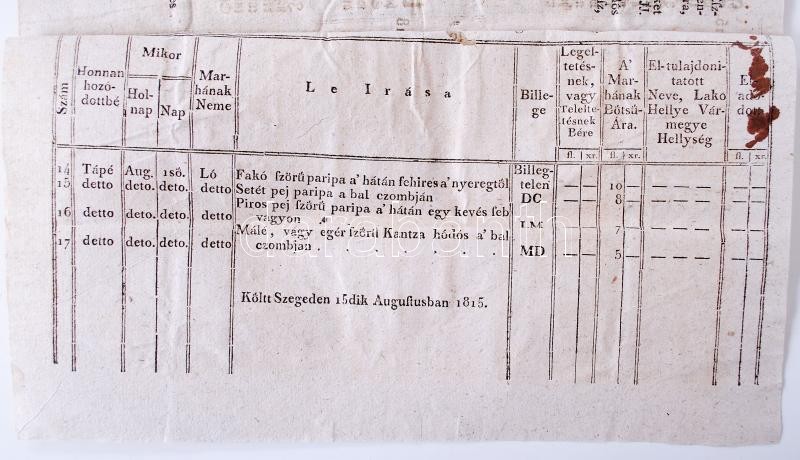 Szám
Honnan hozódottbé
Mikor
Holnap
Nap
Marhának Neme
Le Irása
Billege
Legeltetésnek, vagy Teleltetésnek Bére
A' Marhának Bötsü-Ára.
El-tulajdonitatott Neve, Lakó Hellye Vármegye Hellység
fl. xr. fl. xr. fl. xr.
14 Tápé Aug. 1sö. Ló Fakó ſzörű paripa a' hátán fehires a' nyeregtöl Billegtelen — — 10 — — — —
15 detto deto. deto. detto Setét pej paripa a bal czombján DC — — 8 — — — —
Piros pej ſzörű paripa a' hátán egy kevés ſeb
16 detto deto. deto. detto vagyon . LM — — 7 — — — —
Málé, vagy egér ſzörü Kantza hódós a' bal
17 detto deto. deto. detto czombján . . . . . . MD — — 5 — — — —
Költt Szegeden 15dik Auguſtusban 1815.
darabanth